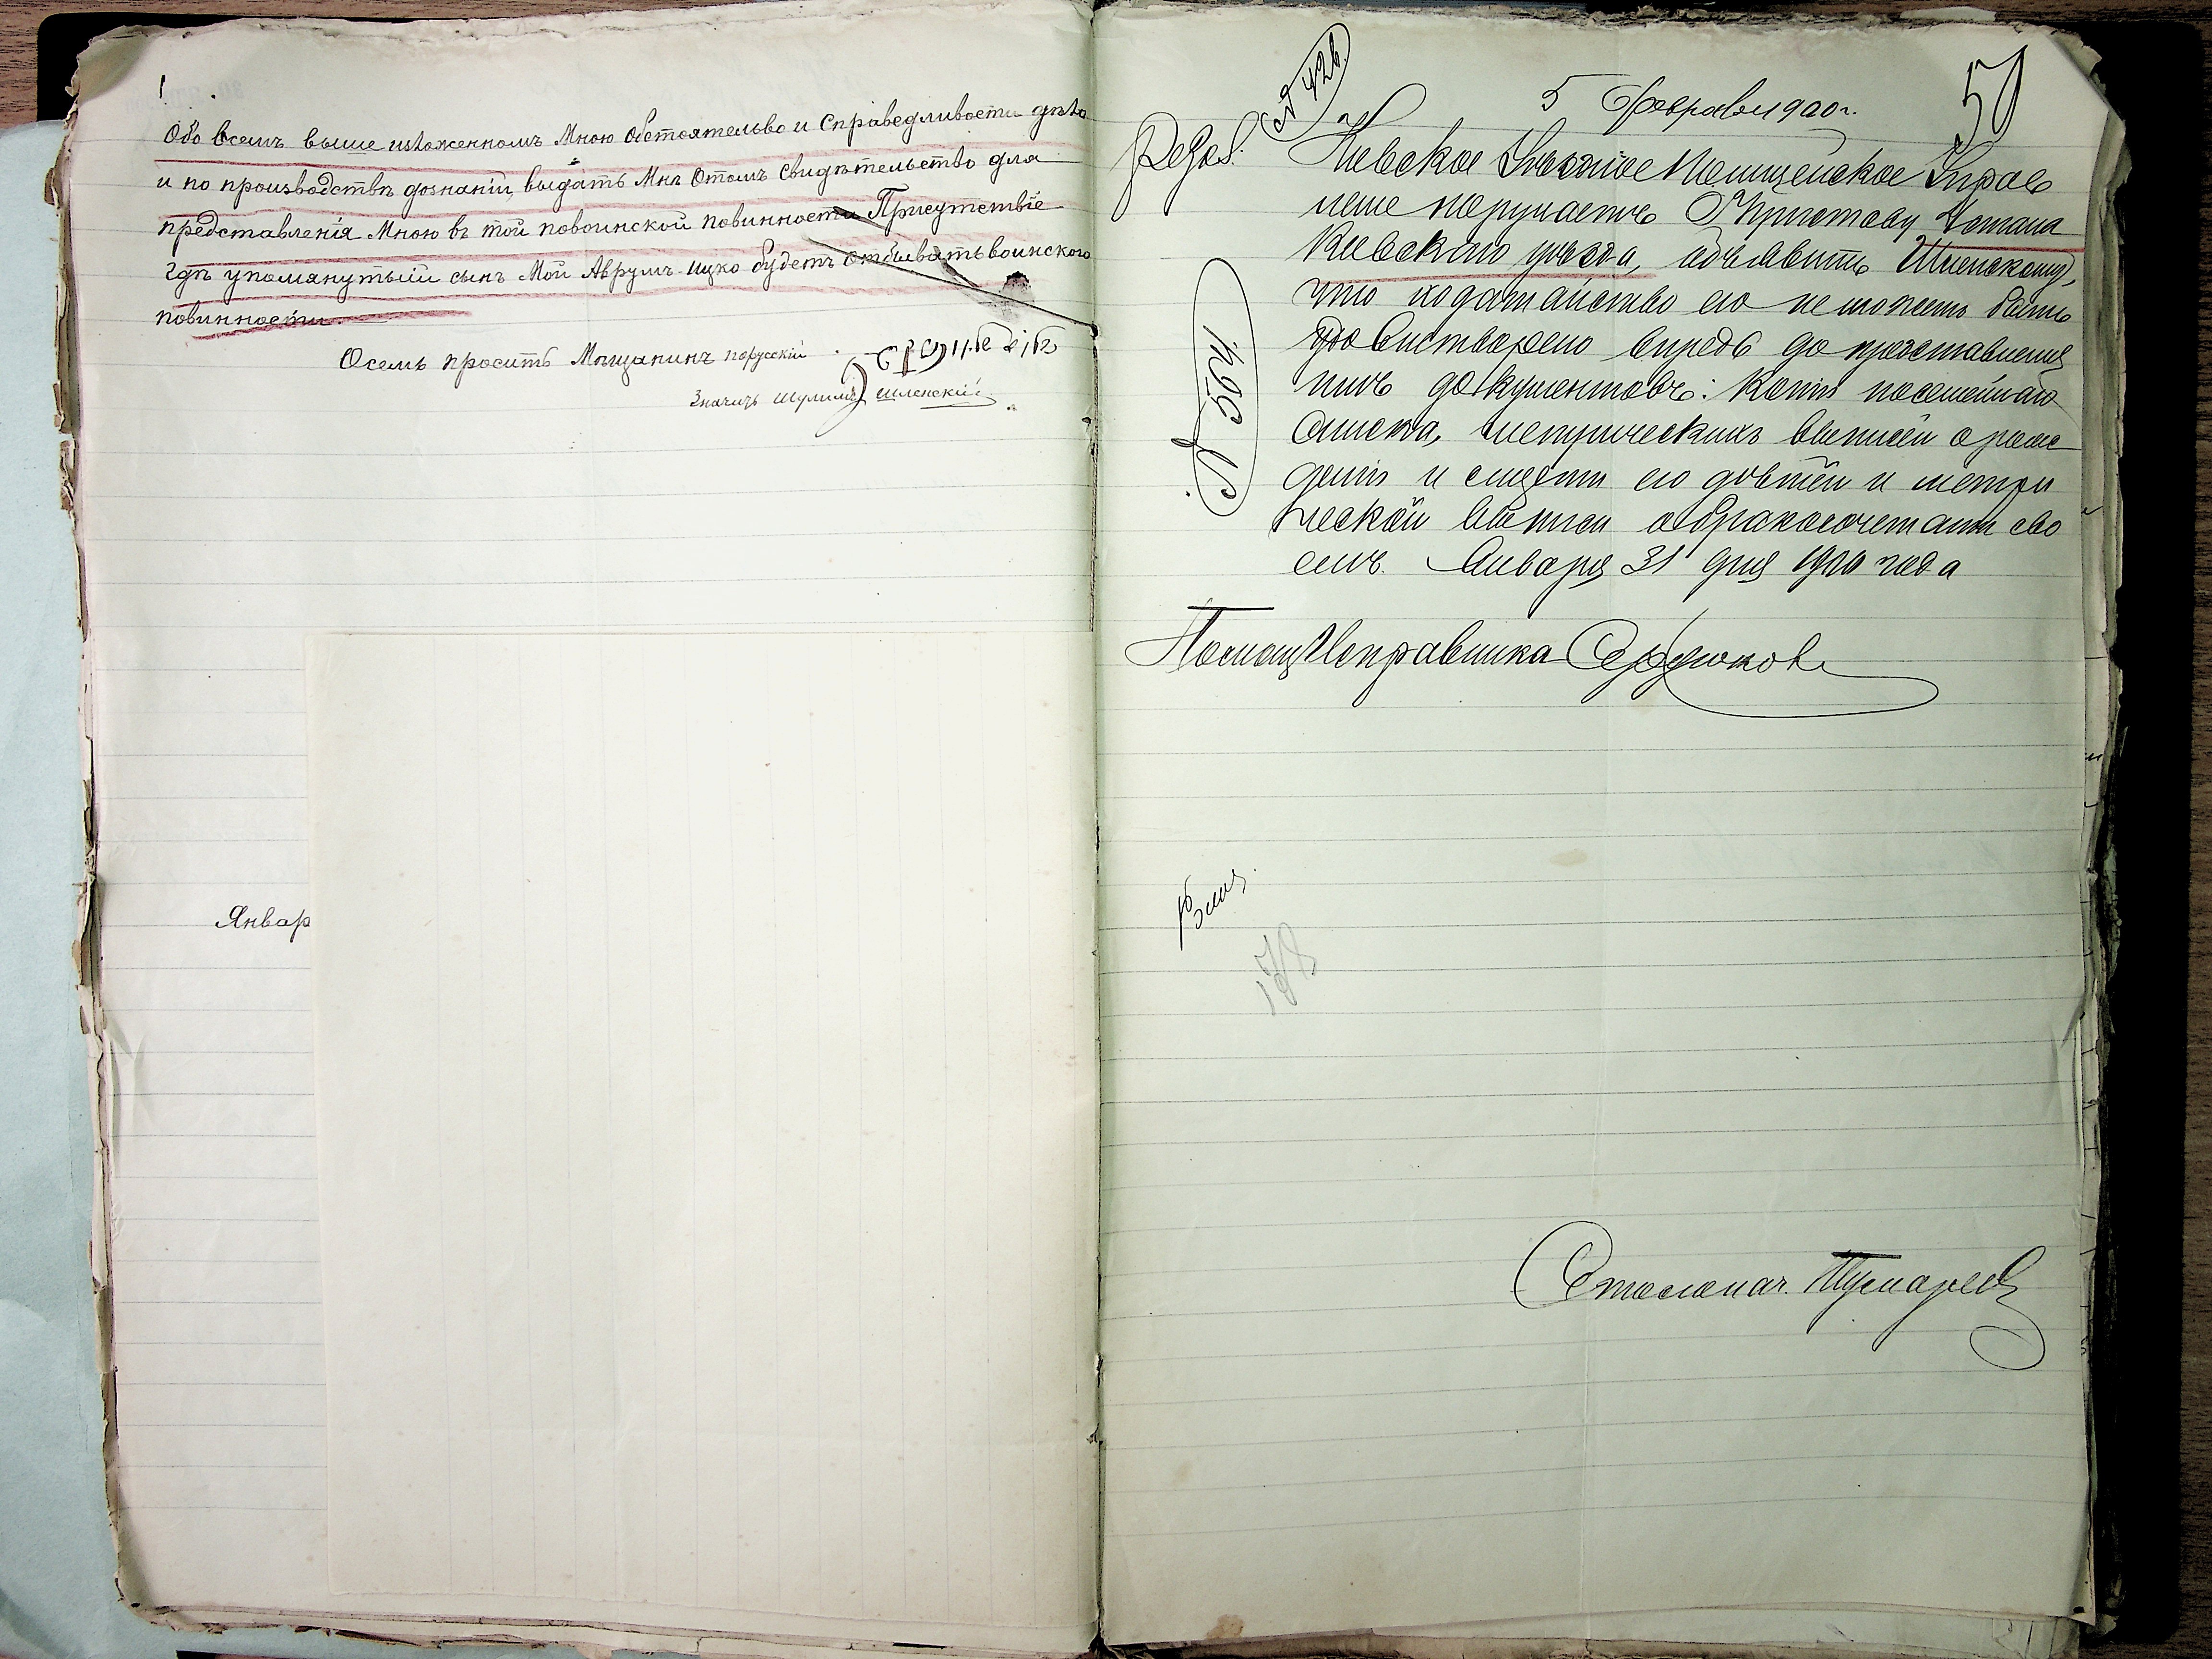 Обо всемъ выше изложенномъ Мною Обстоятельво и Справедливости дѣло
и по производствѣ дознанія, выдать Мнѣ Отомъ Свидѣтельство для
представленія Мною въ той повоинской повинности Присутствіе
гдѣ упомянутый сынъ Мой Аврумъ-Ицко будетъ Отбывать воинского
повинности.
Осемъ просить Мѣщанинъ порусскій
Значитъ Шулимъ Шленскій
Январ
№ 426
5 Февраля 1900 г.
50
Кіевское Уѣздное Полицейское Управ
леніе поручаетъ Г. Приставу 4 стана
Кіевского уѣзда, объявить Шленскому,
что ходатайство его не можетъ быть
удовлетворено впредь до представленія
имъ документовъ: копіи посемейнаго
списка, метрическихъ выписей о рож
деніи и смерти его дѣтей и метри
ческой выписи о бракосочетаніи сво
емъ. Января 31 дня 1900 года
Помощ Исправника Сердюковъ
Столонач.